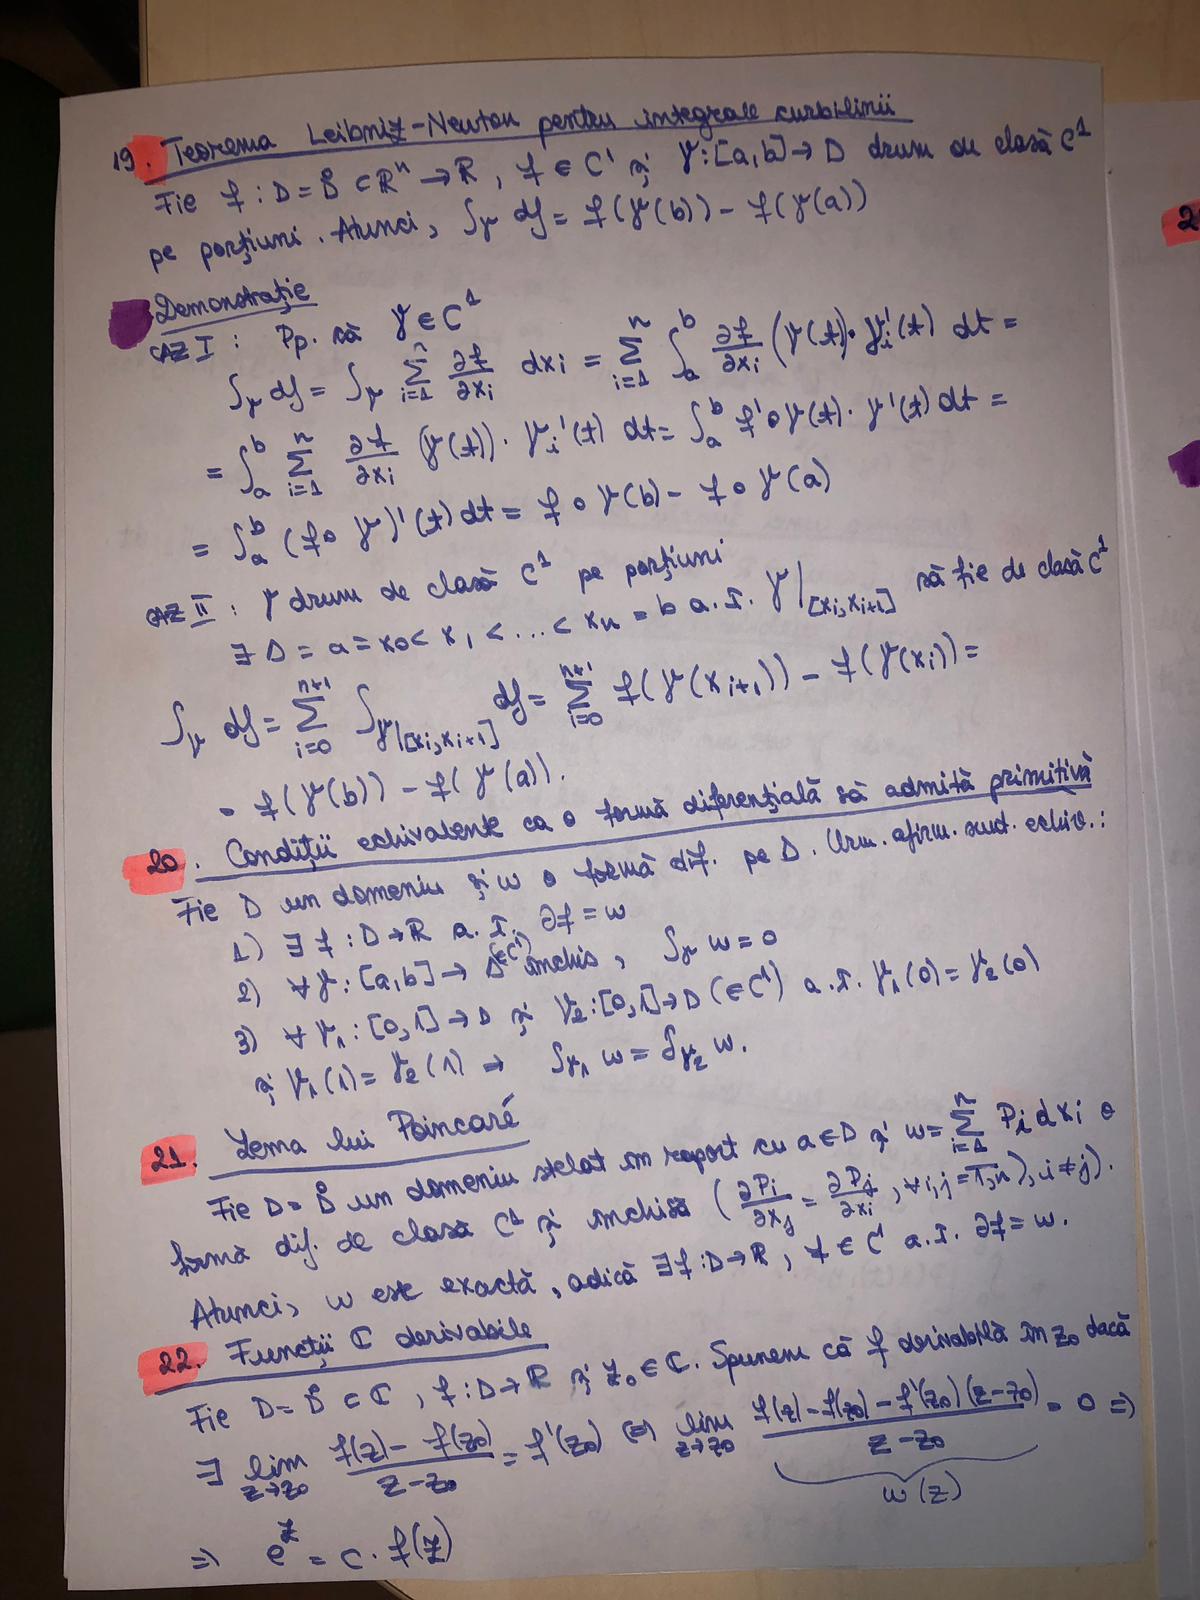 19. Teorema Leibniz-Newton pentru integrale curbilinii
Fie f : D = D̊ ⊂ ℝⁿ → ℝ, f ∈ C¹ și γ : [a,b] → D drum cu clasă C¹
pe porțiuni. Atunci, ∫γ df = f(γ(b)) - f(γ(a))
Demonstrație
CAZ I : Pp. să γ ∈ C¹
∫γ df = ∫γ ∑_{i=1}^{n} ∂f/∂xi dxi = ∑_{i=1}^{n} ∫_a^b ∂f/∂xi (γ(t)) · γi'(t) dt =
= ∫_a^b ∑_{i=1}^{n} ∂f/∂xi (γ(t)) · γi'(t) dt = ∫_a^b f' ∘ γ(t) · γ'(t) dt =
= ∫_a^b (f ∘ γ)'(t) dt = f ∘ γ(b) - f ∘ γ(a)
CAZ II : γ drum de clasă C¹ pe porțiuni
∃ Δ = a = x0 < x1 < ... < xn = b a.î. γ|[xi, xi+1] să fie de clasă C¹
∫γ df = ∑_{i=0}^{n+1} ∫γ|[xi, xi+1] df = ∑_{i=0}^{n+1} f(γ(xi+1)) - f(γ(xi)) =
= f(γ(b)) - f(γ(a)).
20. Condiții echivalente ca o formă diferențială să admită primitivă
Fie D un domeniu și w o formă dif. pe D. Urm. afirm. sunt. echiv. :
1) ∃ f : D → ℝ a.î. ∂f = w
2) ∀ γ : [a,b] → D (∈C¹) închis, ∫γ w = 0
3) ∀ γ1 : [0,1] → D și γ2 : [0,1] → D (∈C¹) a.î. γ1(0) = γ2(0)
și γ1(1) = γ2(1) ⇒ ∫γ1 w = ∫γ2 w.
21. Lema lui Poincaré
Fie D = D̊ un domeniu stelat în raport cu a ∈ D și w = ∑_{i=1}^{n} Pi dxi o
formă dif. de clasă C¹ și închisă (∂Pi/∂xj = ∂Pj/∂xi, ∀ i,j = 1,n), i ≠ j).
Atunci, w este exactă, adică ∃ f : D → ℝ, f ∈ C¹ a.î. ∂f = w.
22. Funcții ℂ derivabile
Fie D = D̊ ⊂ ℂ, f : D → ℝ și z0 ∈ ℂ. Spunem că f derivabilă în z0 dacă
∃ lim_{z→z0} (f(z) - f(z0))/(z - z0) = f'(z0) (⇒) lim_{z→z0} (f(z) - f(z0) - f'(z0)(z - z0))/(z - z0) = 0 ⇒
w(z)
⇒ e^z = c · f(z)